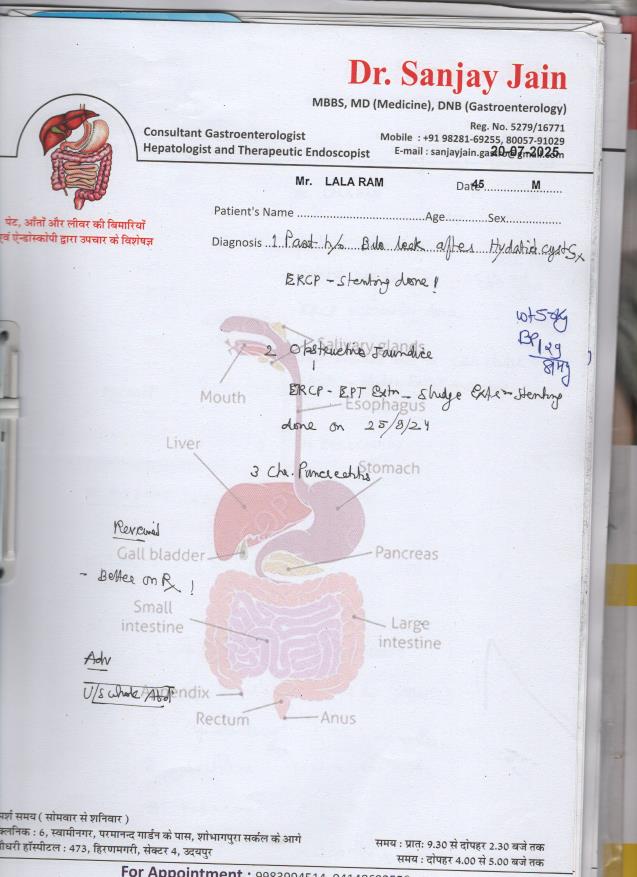 Dr. Sanjay Jain
MBBS, MD (Medicine), DNB (Gastroenterology)
Reg. No. 5279/16771
Consultant Gastroenterologist
Mobile : +91 98281-69255, 80057-91029
Hepatologist and Therapeutic Endoscopist
E-mail : sanjayjain.gastro@gmail.com
20-07-2025
Mr. LALA RAM
Date
45 M
पेट, आँतों और लीवर की बिमारियों
एवं ऐन्डोस्कोपी द्वारा उपचार के विशेषज्ञ
Patient's Name ........ Age ........ Sex ........
Diagnosis 1. Past h/o Bile leak after Hydatid cyst Sx
ERCP - Stenting done !
wt 50kg
BP 129
Salivary glands
2 Obstructive Jaundice
Mouth
ERCP - EPT Extn - Sludge Extr - Stenting
Esophagus
done on 25/9/24
Liver
3 Chr. Pancreatitis
Stomach
Reviewed
Gall bladder
Pancreas
- Better on Rx !
Small
intestine
Large
intestine
Adv
U/S whole Abd
Appendix
Rectum
Anus
मर्श समय ( सोमवार से शनिवार )
क्लनिक : 6, स्वामीनगर, परमानन्द गार्डन के पास, शोभागपुरा सर्कल के आगे
समय : प्रात: 9.30 से दोपहर 2.30 बजे तक
ौधरी हॉस्पीटल : 473, हिरणमगरी, सेक्टर 4, उदयपुर
समय : दोपहर 4.00 से 5.00 बजे तक
For Appointment :